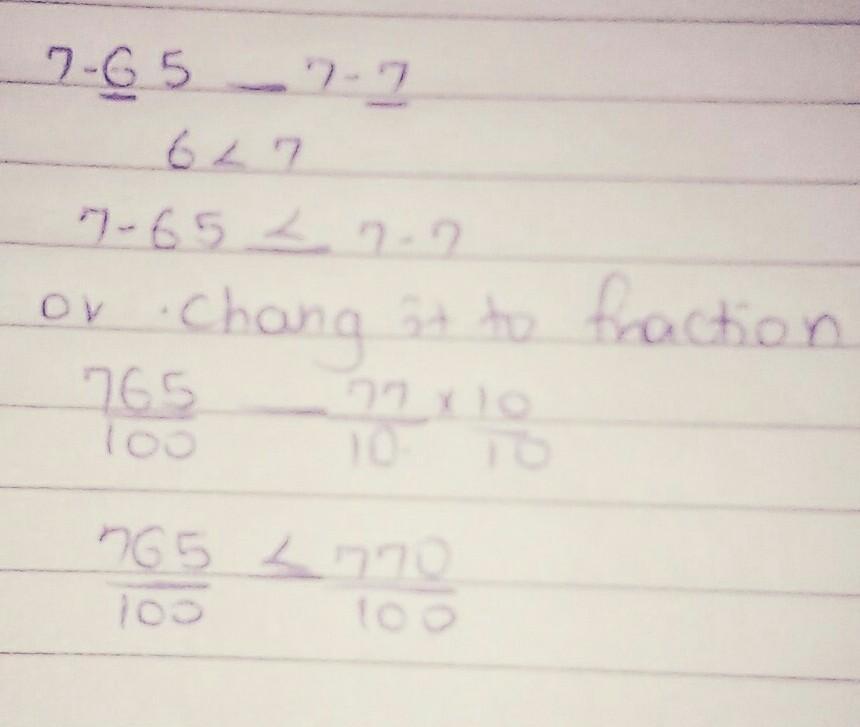 7-65 _ 7-7
6 < 7
7-65 < 7-7
or . Chang it to fraction
765/100 _ 77/10 x 10/10
765/100 < 770/100